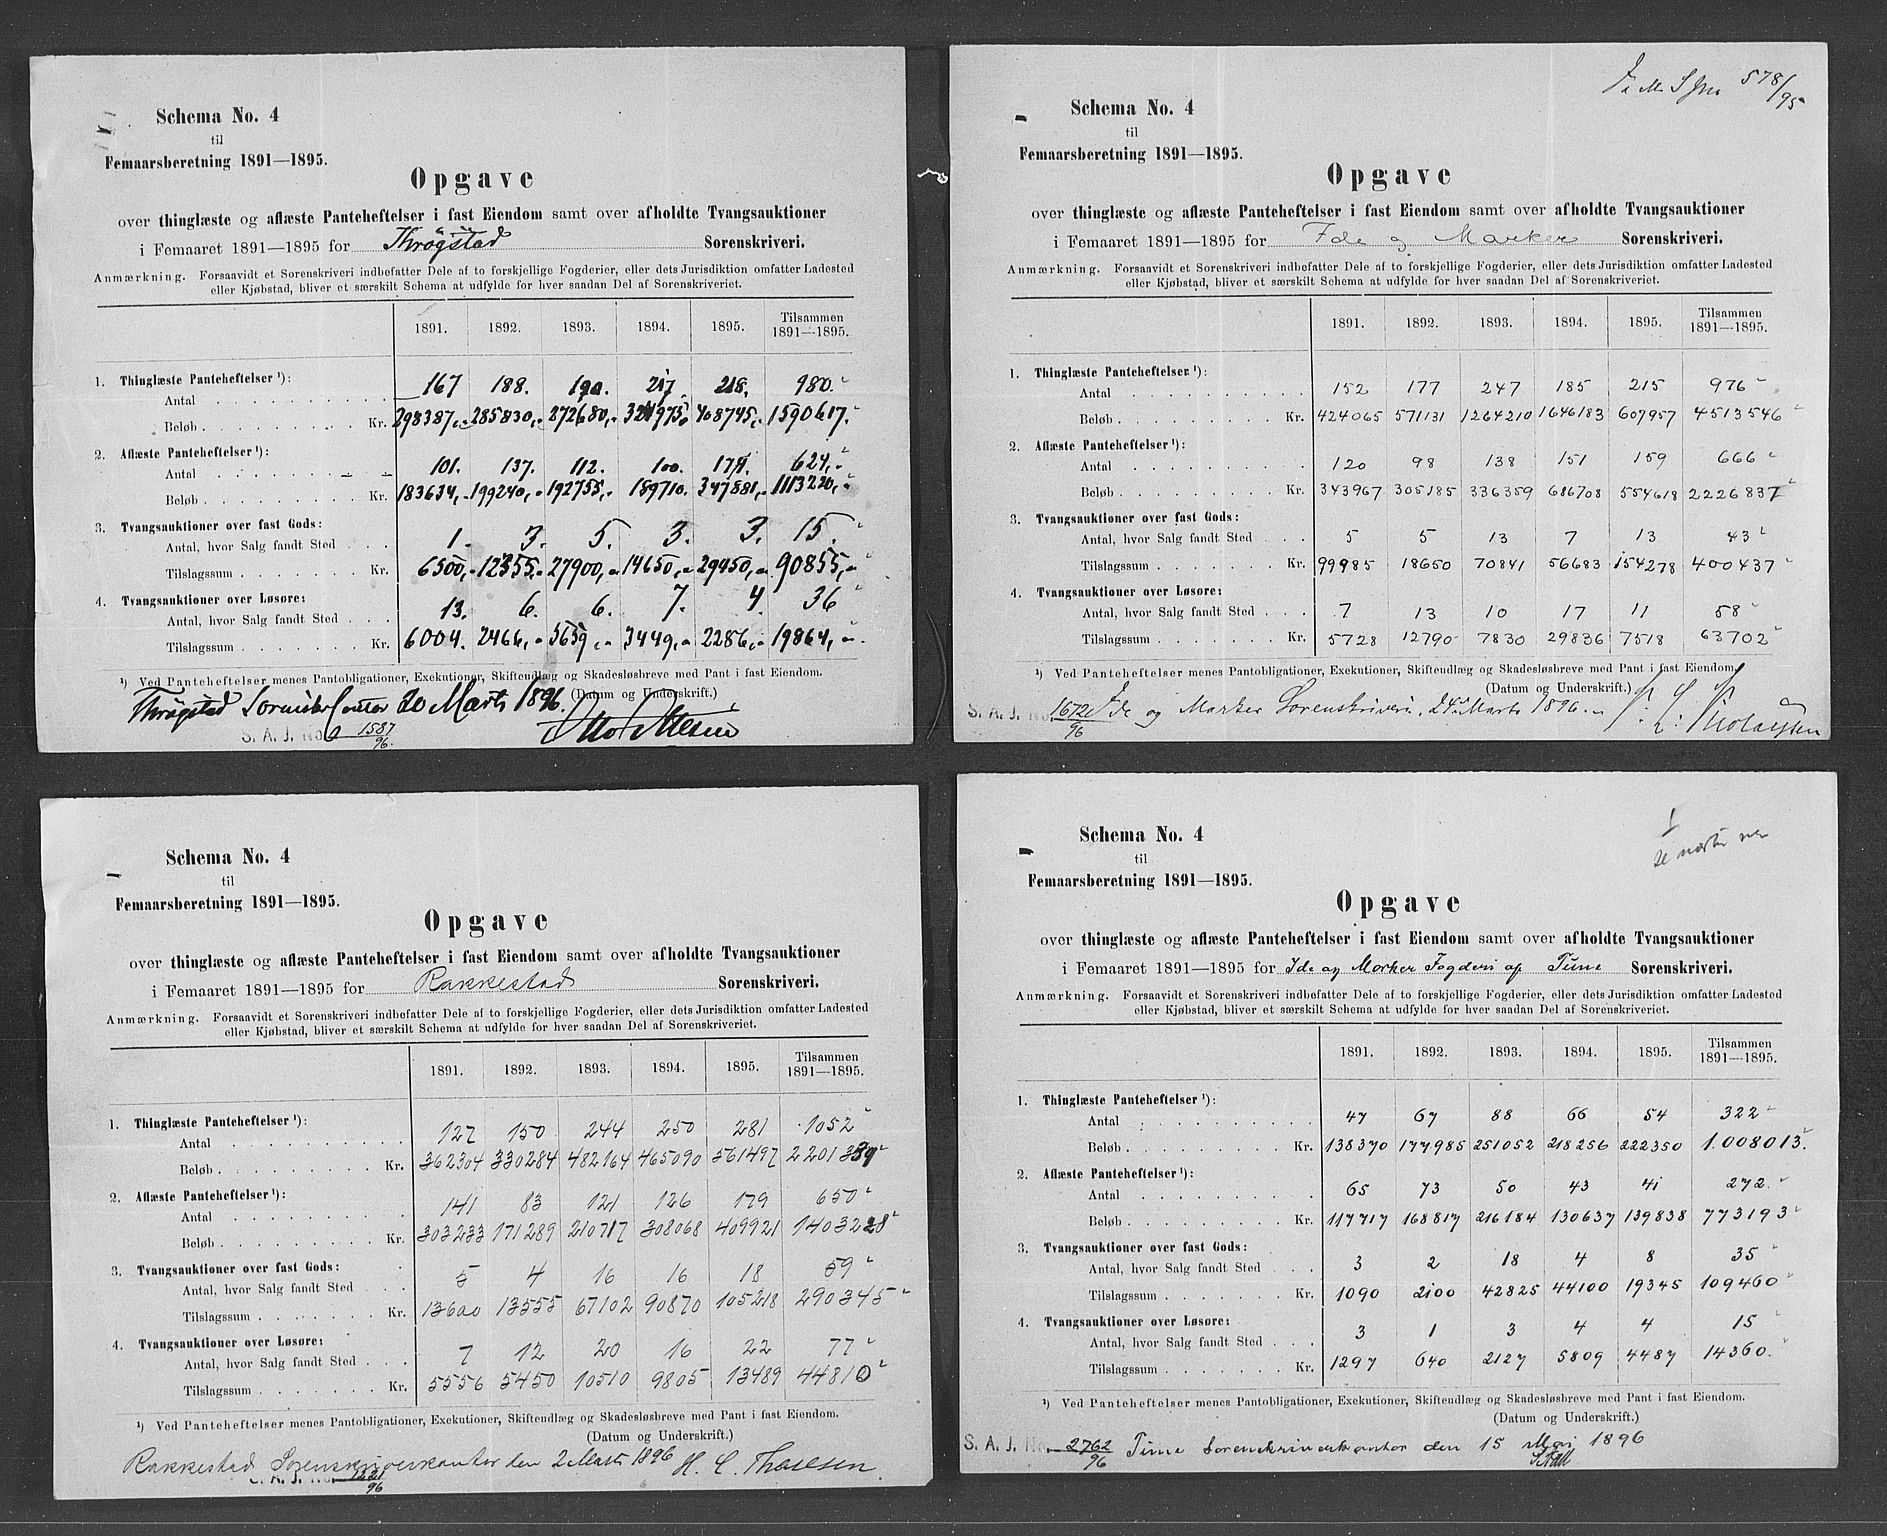 Schema No. 4
til
Femaarsberetning 1891—1895.
Opgave
over thinglæste og aflæste Panteheftelser i fast Eiendom samt over afholdte Tvangsauktioner
i Femaaret 1891—1895 for Thrøgstad Sorenskriveri.
Anmærkning. Forsaavidt et Sorenskriveri indbefatter Dele af to forskjellige Fogderier, eller dets Jurisdiktion omfatter Ladested
eller Kjøbstad, bliver et særskilt Schema at udfylde for hver saadan Del af Sorenskriveriet.
1891. 1892. 1893. 1894. 1895. Tilsammen 1891—1895.
1. Thinglæste Panteheftelser ¹):
Antal 167 188. 190. 217. 218. 980.
Beløb Kr. 298387,- 285830,- 272680,- 324975, 408745,- 1590617.
2. Aflæste Panteheftelser ¹):
Antal 101. 137. 112. 100. 174. 624,-
Beløb Kr. 183634,- 199240,- 192755,- 189710. 347881,- 1113220,-
3. Tvangsauktioner over fast Gods:
Antal, hvor Salg fandt Sted 1. 3. 5. 3. 3. 15.
Tilslagssum Kr. 6500,- 12355,- 27900,- 14650,- 29450,- 90855,-
4. Tvangsauktioner over Løsøre:
Antal, hvor Salg fandt Sted 13. 6. 6. 7. 4. 36
Tilslagssum Kr. 6004. 2466,- 5659,- 3449,- 2286,- 19864,-
¹) Ved Panteheftelser menes Pantobligationer, Exekutioner, Skiftendlæg og Skadesløsbreve med Pant i fast Eiendom.
(Datum og Underskrift.)
Thrøgstad 20 Marts 1896.
S. A. J. No. 1587/96.
I. M. S 578/95
Schema No. 4
til
Femaarsberetning 1891—1895.
Opgave
over thinglæste og aflæste Panteheftelser i fast Eiendom samt over afholdte Tvangsauktioner
i Femaaret 1891—1895 for Ide og Marker Sorenskriveri.
Anmærkning. Forsaavidt et Sorenskriveri indbefatter Dele af to forskjellige Fogderier, eller dets Jurisdiktion omfatter Ladested
eller Kjøbstad, bliver et særskilt Schema at udfylde for hver saadan Del af Sorenskriveriet.
1891. 1892. 1893. 1894. 1895. Tilsammen 1891—1895.
1. Thinglæste Panteheftelser ¹):
Antal 152 177 247 185 215 976
Beløb Kr. 424065 571131 1264210 1646183 607957 4513546
2. Aflæste Panteheftelser ¹):
Antal 120 98 138 151 159 666
Beløb Kr. 343967 305185 336359 686708 554618 2226837
3. Tvangsauktioner over fast Gods:
Antal, hvor Salg fandt Sted 5 5 13 7 13 43
Tilslagssum Kr. 99985 18650 70841 56683 154278 400437
4. Tvangsauktioner over Løsøre:
Antal, hvor Salg fandt Sted 7 13 10 17 11 58
Tilslagssum Kr. 5728 12790 7830 29836 7518 63702
¹) Ved Panteheftelser menes Pantobligationer, Exekutioner, Skiftendlæg og Skadesløsbreve med Pant i fast Eiendom.
(Datum og Underskrift.)
S. A. J. No. 1672/96 Ide og Marker Sorenskriveri, 24 Marts 1896.
Schema No. 4
til
Femaarsberetning 1891—1895.
Opgave
over thinglæste og aflæste Panteheftelser i fast Eiendom samt over afholdte Tvangsauktioner
i Femaaret 1891—1895 for Rakkestad Sorenskriveri.
Anmærkning. Forsaavidt et Sorenskriveri indbefatter Dele af to forskjellige Fogderier, eller dets Jurisdiktion omfatter Ladested
eller Kjøbstad, bliver et særskilt Schema at udfylde for hver saadan Del af Sorenskriveriet.
1891. 1892. 1893. 1894. 1895. Tilsammen 1891—1895.
1. Thinglæste Panteheftelser ¹):
Antal 127 150 244 250 281 1052
Beløb Kr. 362304 330284 482164 465090 561497 2201339
2. Aflæste Panteheftelser ¹):
Antal 141 83 121 126 179 650
Beløb Kr. 303233 171289 210717 308068 409921 1403228
3. Tvangsauktioner over fast Gods:
Antal, hvor Salg fandt Sted 5 4 16 16 18 59
Tilslagssum Kr. 13600 13555 67102 90870 105218 290345
4. Tvangsauktioner over Løsøre:
Antal, hvor Salg fandt Sted 7 12 20 16 22 77
Tilslagssum Kr. 5556 5450 10510 9805 13489 44810
¹) Ved Panteheftelser menes Pantobligationer, Exekutioner, Skiftendlæg og Skadesløsbreve med Pant i fast Eiendom.
(Datum og Underskrift.)
Rakkestad Sorenskriverkontor den 2 Marts 1896
S. A. J. No. 1221/96
Schema No. 4
til
Femaarsberetning 1891—1895.
Opgave
over thinglæste og aflæste Panteheftelser i fast Eiendom samt over afholdte Tvangsauktioner
i Femaaret 1891—1895 for Ide og Marker Fogderi af Tune Sorenskriveri.
Anmærkning. Forsaavidt et Sorenskriveri indbefatter Dele af to forskjellige Fogderier, eller dets Jurisdiktion omfatter Ladested
eller Kjøbstad, bliver et særskilt Schema at udfylde for hver saadan Del af Sorenskriveriet.
1891. 1892. 1893. 1894. 1895. Tilsammen 1891—1895.
1. Thinglæste Panteheftelser ¹):
Antal 47 67 88 66 54 322
Beløb Kr. 138370 177985 251052 218256 222350 1.008013.
2. Aflæste Panteheftelser ¹):
Antal 65 73 50 43 41 272.
Beløb Kr. 117717 168817 216184 130637 139838 773193
3. Tvangsauktioner over fast Gods:
Antal, hvor Salg fandt Sted 3 2 18 4 8 35
Tilslagssum Kr. 1090 2100 42825 44100 19345 109460
4. Tvangsauktioner over Løsøre:
Antal, hvor Salg fandt Sted 3 1 3 4 4 15
Tilslagssum Kr. 1297 640 2127 5809 4487 14360.
¹) Ved Panteheftelser menes Pantobligationer, Exekutioner, Skiftendlæg og Skadesløsbreve med Pant i fast Eiendom.
(Datum og Underskrift.)
S. A. J. No. 2762/96 Tune Sorenskriverkontor den 15 Mai 1896